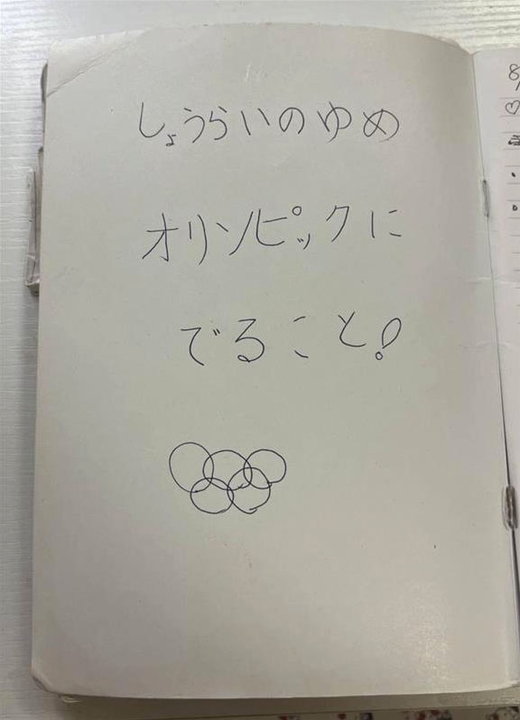 しょうらいのゆめ
オリンピックに
でること!
8/